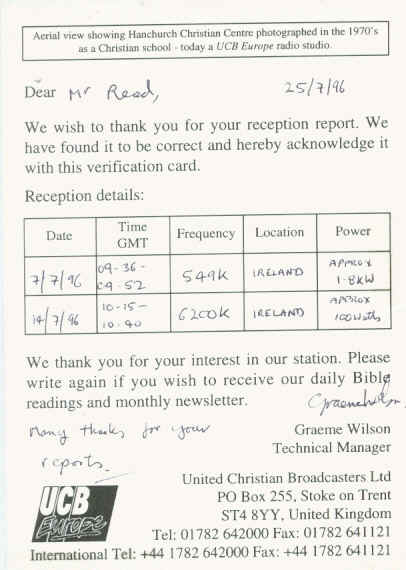 Aerial view showing Hanchurch Christian Centre photographed in the 1970's
as a Christian school - today a UCB Europe radio studio.
Dear Mr Read,
25/7/96
We wish to thank you for your reception report. We
have found it to be correct and hereby acknowledge it
with this verification card.
Reception details:
Date Time GMT Frequency Location Power
7/7/96 09-36-09-52 549K IRELAND APPROX 1.8KW
14/7/96 10-15-10-40 6200K IRELAND APPROX 100Watts
We thank you for your interest in our station. Please
write again if you wish to receive our daily Bible
readings and monthly newsletter.
Graeme Wilson
Many thanks for your
reports.
Graeme Wilson
Technical Manager
UCB
Europe
United Christian Broadcasters Ltd
PO Box 255, Stoke on Trent
ST4 8YY, United Kingdom
Tel: 01782 642000 Fax: 01782 641121
International Tel: +44 1782 642000 Fax: +44 1782 641121